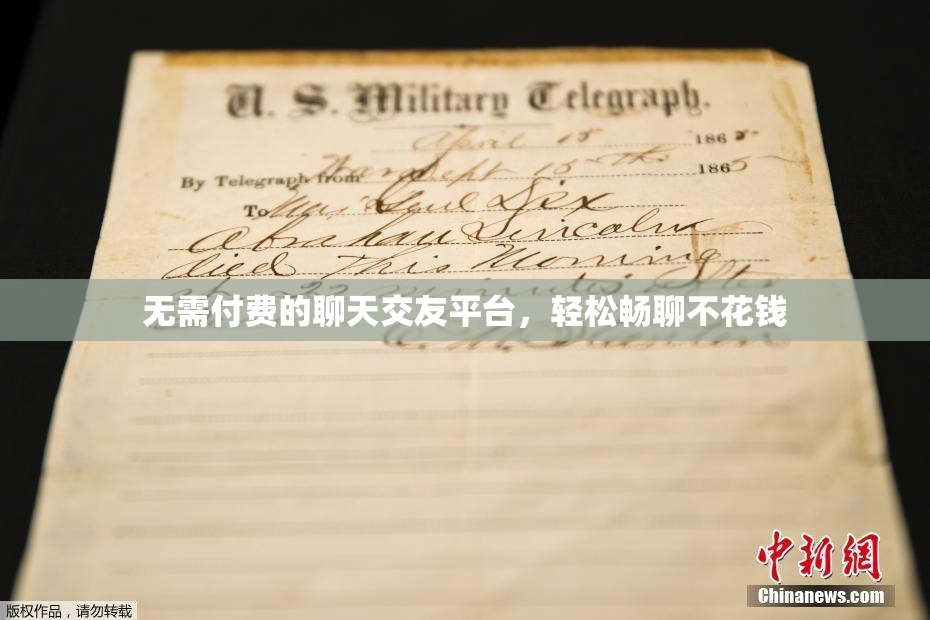 U. S. Military Telegraph.
April 15 1865
By Telegraph from War Dept 15th 1865
To Maj Genl Dix
Abraham Lincoln
died This Morning
22 minutes after
无需付费的聊天交友平台，轻松畅聊不花钱
中新網
Chinanews.com
版权作品，请勿转载